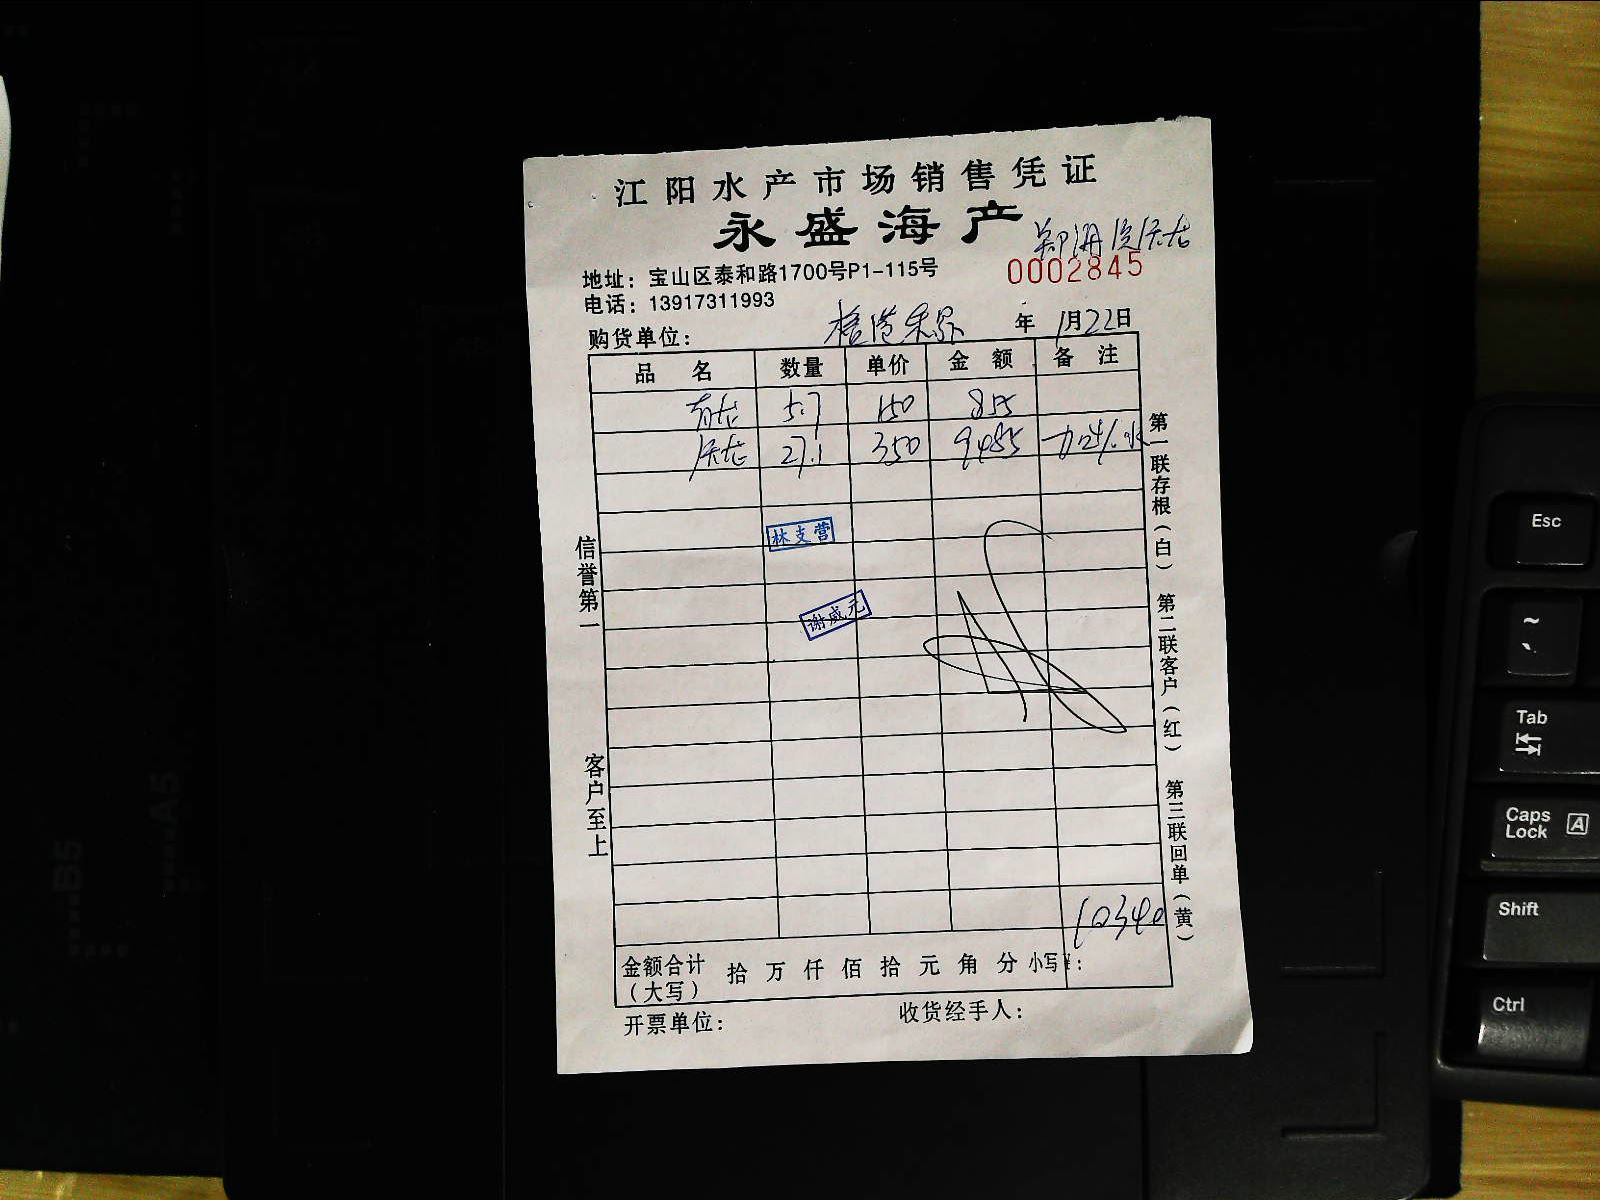 江阳水产市场销售凭证
永盛海产
0002845
地址：宝山区泰和路1700号P1-115号
电话：13917311993
购货单位： 年 1月22日
品 名 数量 单价 金 额 备 注
青龙 5.7 150 855
澳龙 27.1 350 9485
林支营
谢威元
信誉第一
客户至上
第一联存根（白） 第二联客户（红） 第三联回单（黄）
10340
金额合计（大写） 拾 万 仟 佰 拾 元 角 分 小写¥：
开票单位： 收货经手人：
Esc
~
Tab
Caps Lock A
Shift
Ctrl
B5
A5